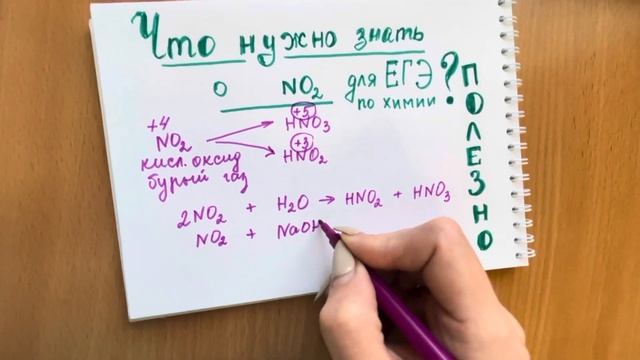 Что нужно знать
о NO₂ для ЕГЭ ?
по химии
ПОЛЕЗНО
+4
NO₂
кисл. оксид
бурый газ
+5
HNO₃
+3
HNO₂
2NO₂ + H₂O → HNO₂ + HNO₃
NO₂ + NaOH